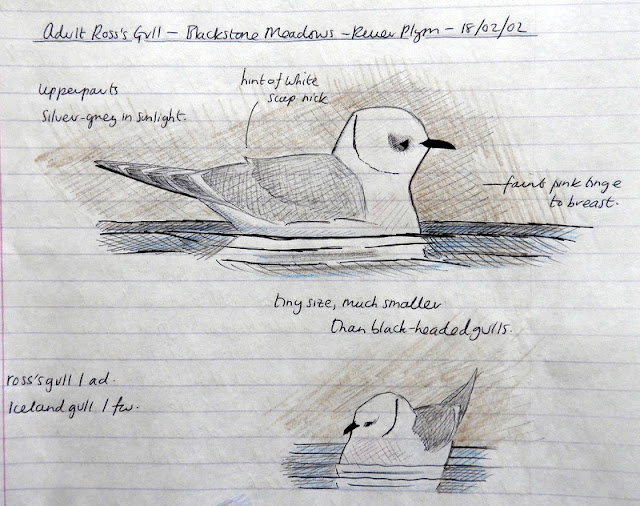 Adult Ross's Gull – Blackstone Meadows – River Plym – 18/02/02
upperparts
silver-grey in sunlight.
hint of white
scap nick
faint pink tinge
to breast.
tiny size, much smaller
than black-headed gulls.
ross's gull 1 ad.
Iceland gull 1 fw.